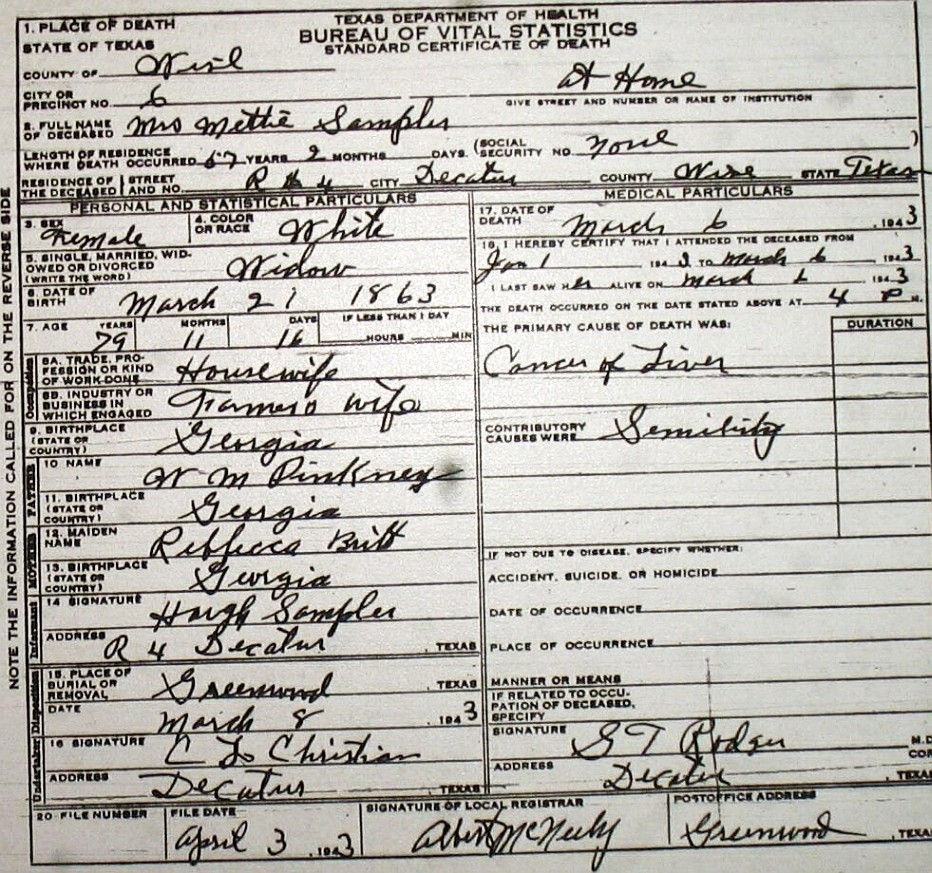 TEXAS DEPARTMENT OF HEALTH
BUREAU OF VITAL STATISTICS
STANDARD CERTIFICATE OF DEATH
1. PLACE OF DEATH
STATE OF TEXAS
COUNTY OF Wise
CITY OR PRECINCT NO. 6
At Home
GIVE STREET AND NUMBER OR NAME OF INSTITUTION
2. FULL NAME OF DECEASED Mrs Mettie Sampler
LENGTH OF RESIDENCE WHERE DEATH OCCURRED 67 YEARS 2 MONTHS DAYS. (SOCIAL SECURITY NO. None )
RESIDENCE OF THE DECEASED STREET AND NO. R # 4 CITY Decatur COUNTY Wise STATE Texas
PERSONAL AND STATISTICAL PARTICULARS
3. SEX Female
4. COLOR OR RACE White
5. SINGLE, MARRIED, WIDOWED OR DIVORCED (WRITE THE WORD) Widow
6. DATE OF BIRTH March 21 1863
7. AGE YEARS 79 MONTHS 11 DAYS 16 IF LESS THAN 1 DAY HOURS MIN
Occupation
8A. TRADE, PROFESSION OR KIND OF WORK DONE Housewife
8B. INDUSTRY OR BUSINESS IN WHICH ENGAGED Farmers wife
9. BIRTHPLACE (STATE OR COUNTRY) Georgia
FATHER
10 NAME W M Pinkney
11. BIRTHPLACE (STATE OR COUNTRY) Georgia
MOTHER
12. MAIDEN NAME Rebbecca Britt
13. BIRTHPLACE (STATE OR COUNTRY) Georgia
Informant
14 SIGNATURE Hargh Sampler
ADDRESS R 4 Decatur, TEXAS
Disposition
15. PLACE OF BURIAL OR REMOVAL Greenwood, TEXAS
DATE March 8, 1943
Undertaker
16 SIGNATURE C L Christian
ADDRESS Decatur, TEXAS
MEDICAL PARTICULARS
17. DATE OF DEATH March 6, 1943
18. I HEREBY CERTIFY THAT I ATTENDED THE DECEASED FROM
Jan 1 1943 TO March 6 1943
I LAST SAW Her ALIVE ON March 6 1943
THE DEATH OCCURRED ON THE DATE STATED ABOVE AT 4 P M.
THE PRIMARY CAUSE OF DEATH WAS: DURATION
Cancer of Liver
CONTRIBUTORY CAUSES WERE Semility
IF NOT DUE TO DISEASE, SPECIFY WHETHER:
ACCIDENT, SUICIDE, OR HOMICIDE
DATE OF OCCURRENCE
PLACE OF OCCURRENCE
MANNER OR MEANS
IF RELATED TO OCCUPATION OF DECEASED, SPECIFY
SIGNATURE S T Rodger M.D.
ADDRESS Decatur, TEXAS
20 FILE NUMBER
FILE DATE April 3, 1943
SIGNATURE OF LOCAL REGISTRAR Albert McNeely
POSTOFFICE ADDRESS Greenwood, TEXAS
NOTE THE INFORMATION CALLED FOR ON THE REVERSE SIDE